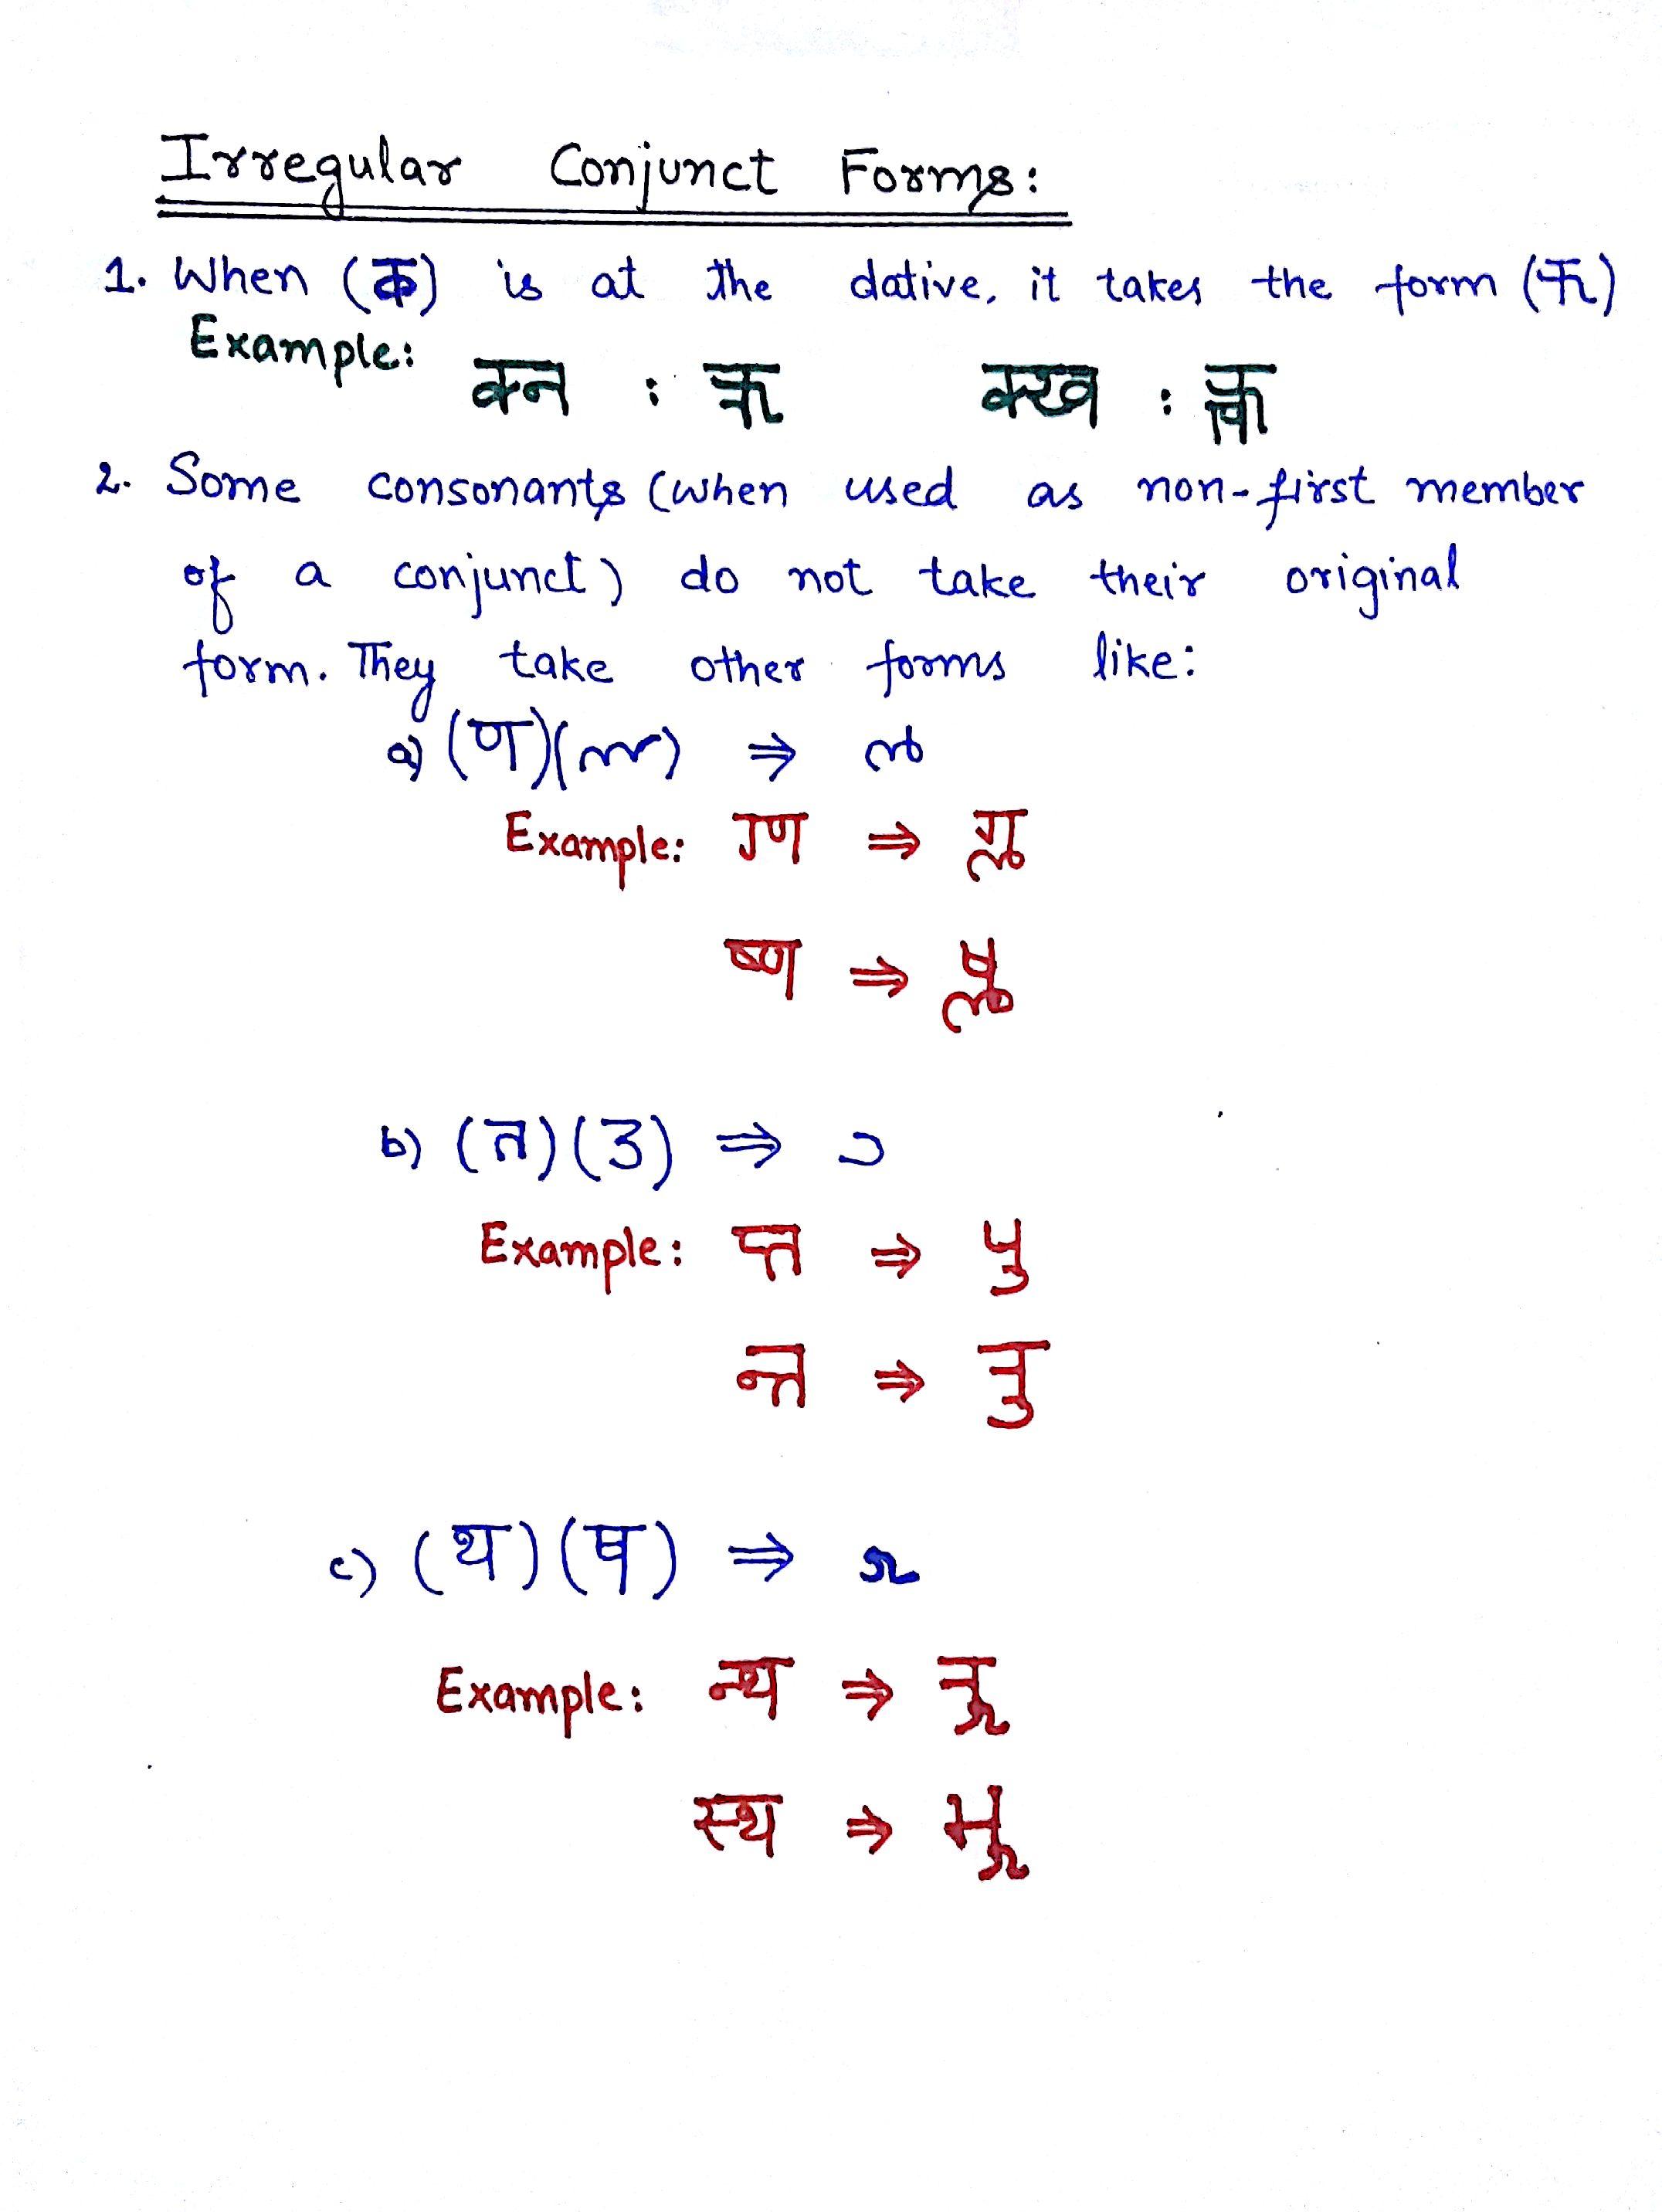 Irregular Conjunct Forms:
1. When (क) is at the dative, it takes the form ( )
Example: क्न : क्ख :
2. Some consonants (when used as non-first member
of a conjunct) do not take their original
form. They take other forms like:
a) (ण) ( ) ⇒
Example: ग्ण ⇒
ष्ण ⇒
b) (त) (3) ⇒
Example: प्त ⇒
न्त ⇒
c) (थ) ( ) ⇒
Example: न्थ ⇒
स्थ ⇒